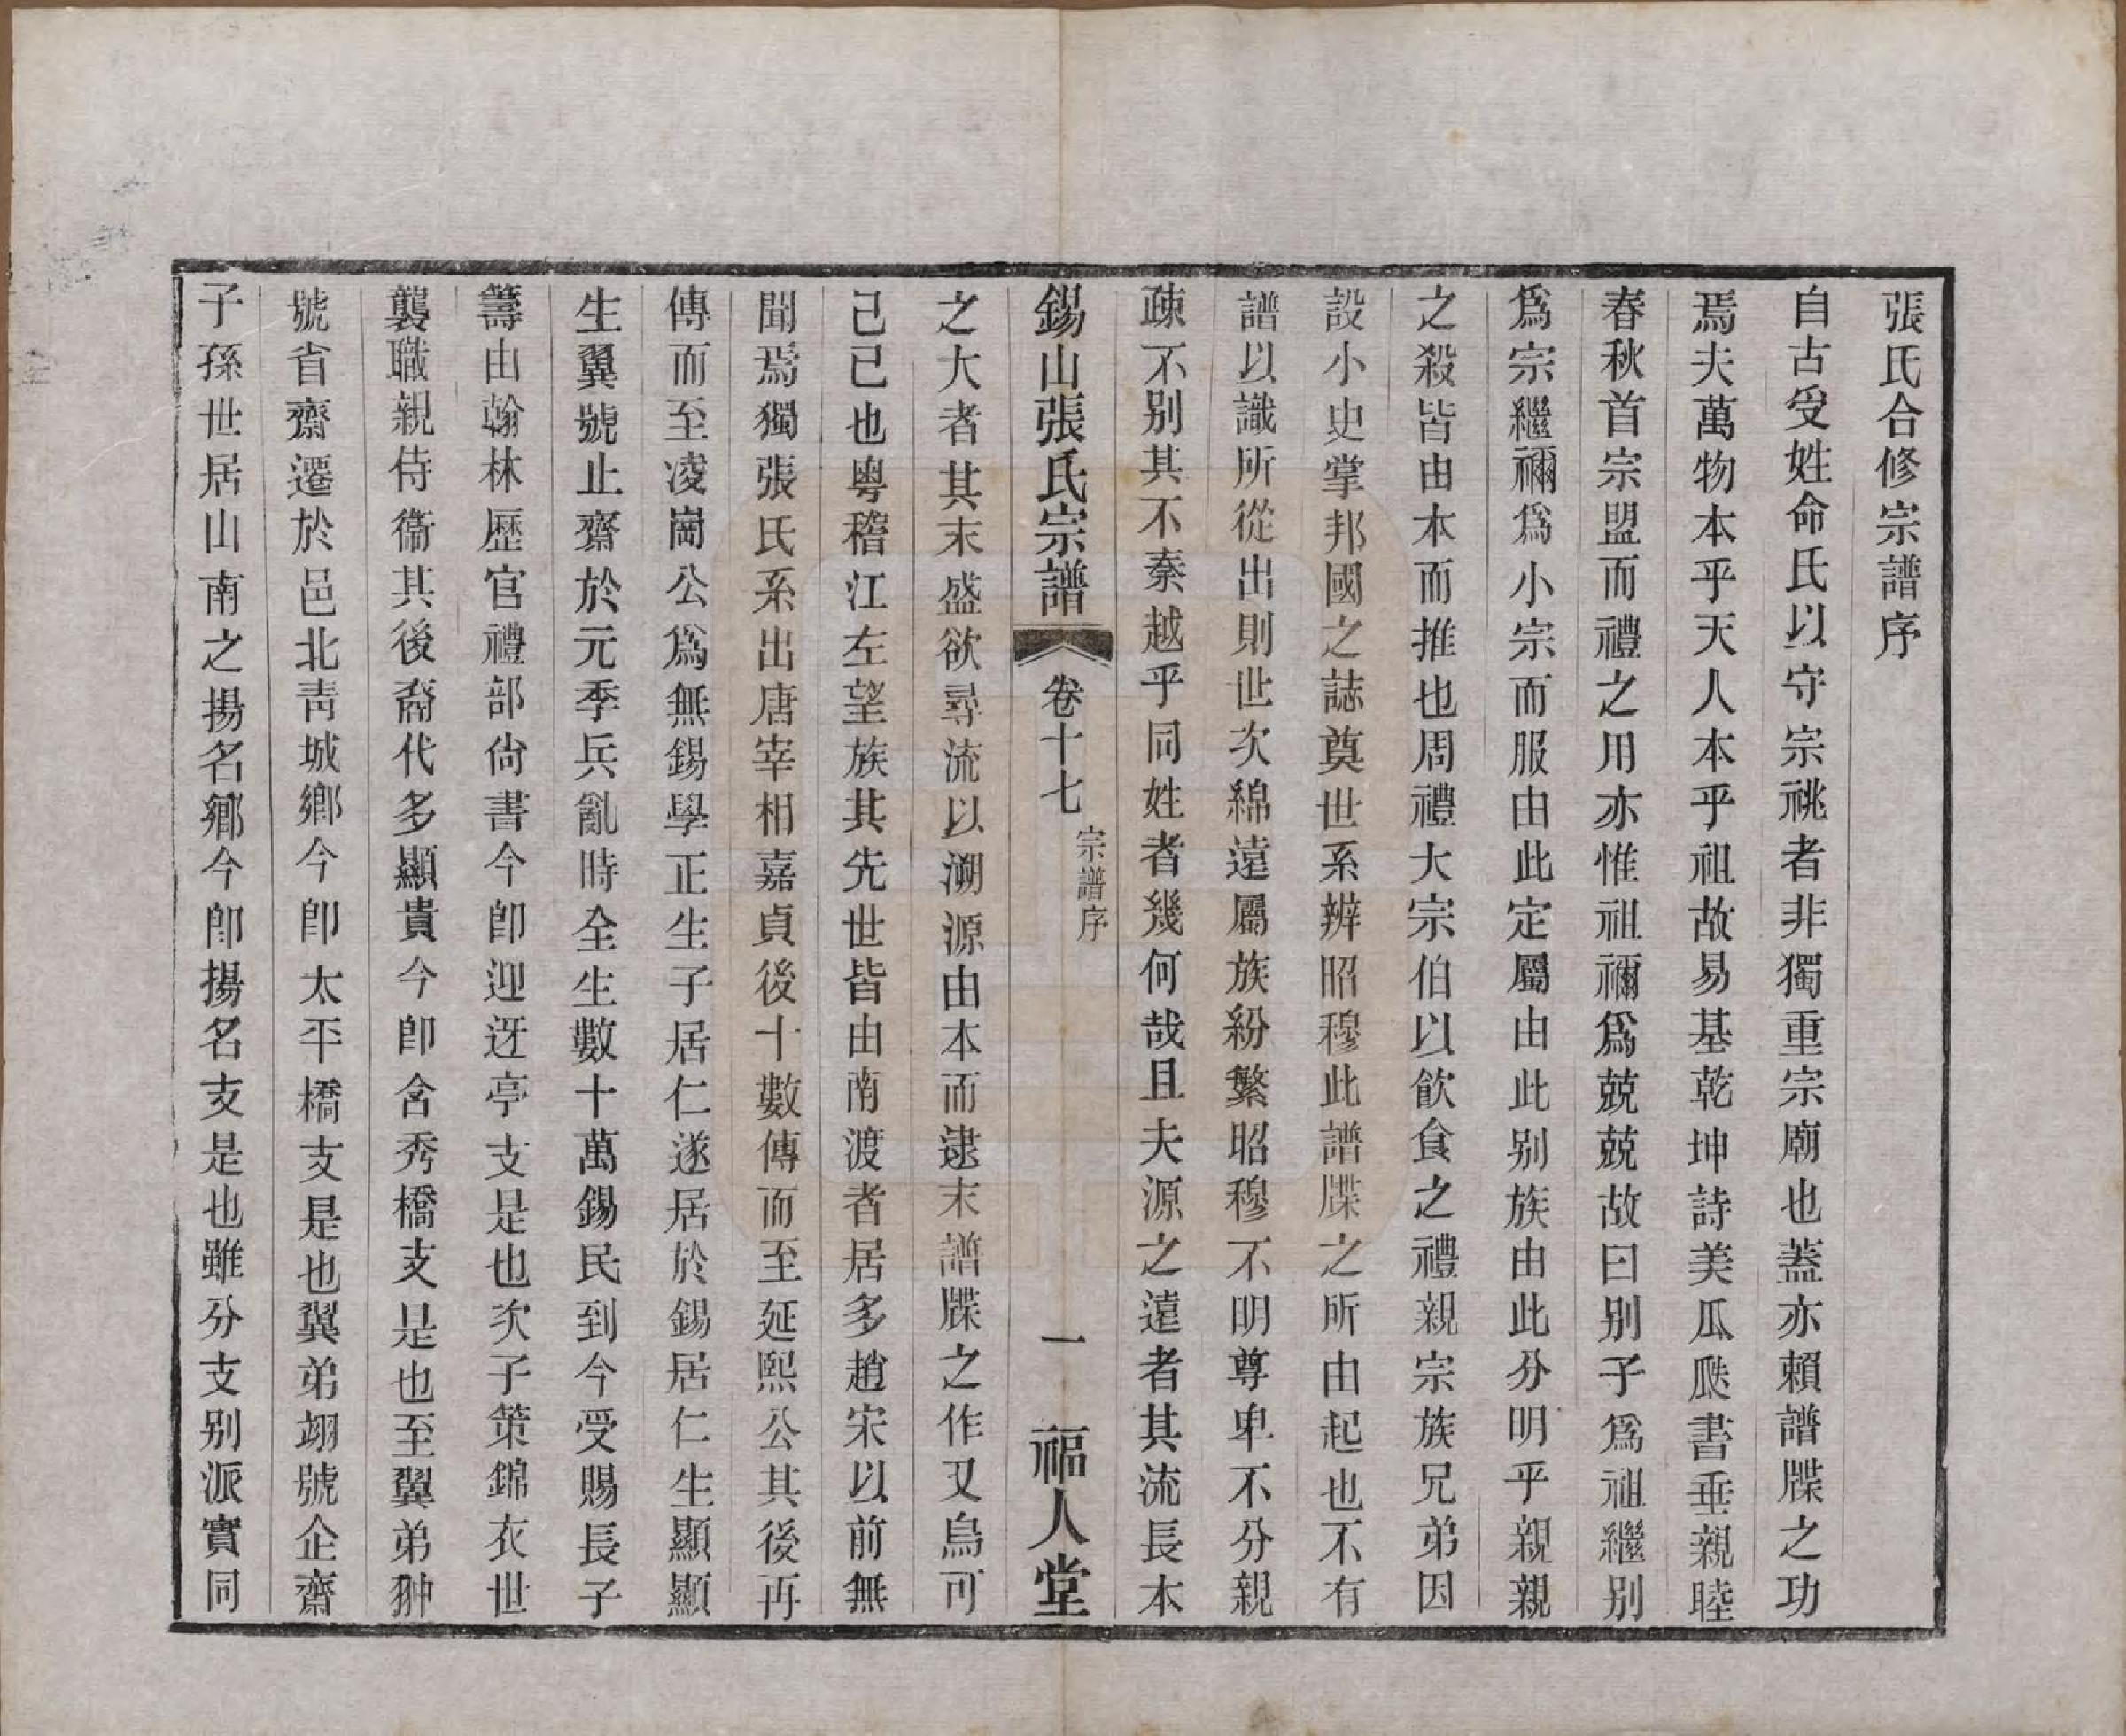 張氏合修宗譜序
自古受姓命氏以守宗祧者非獨重宗廟也蓋亦賴譜牒之功
焉夫萬物本乎天人本乎祖故易基乾坤詩美瓜瓞書垂親睦
春秋首宗盟而禮之用亦惟祖禰爲兢兢故曰别子爲祖繼别
爲宗繼禰爲小宗而服由此定屬由此别族由此分明乎親親
之殺皆由本而推也周禮大宗伯以飲食之禮親宗族兄弟因
設小史掌邦國之誌奠世系辨昭穆此譜牒之所由起也不有
譜以識所從出則世次綿遠屬族紛繁昭穆不明尊卑不分親
疎不别其不秦越乎同姓者幾何哉且夫源之遠者其流長本
錫山張氏宗譜
卷十七
宗譜序
一
福人堂
之大者其末盛欲尋流以溯源由本而逮末譜牒之作又烏可
己已也粤稽江左望族其先世皆由南渡者居多趙宋以前無
聞焉獨張氏系出唐宰相嘉貞後十數傳而至延熙公其後再
傳而至凌崗公爲無錫學正生子居仁遂居於錫居仁生顯顯
生翼號止齋於元季兵亂時全生數十萬錫民到今受賜長子
籌由翰林歷官禮部尙書今卽迎迓亭支是也次子策錦衣世
襲職親侍衞其後裔代多顯貴今卽含秀橋支是也至翼弟翀
號省齋遷於邑北靑城鄉今卽太平橋支是也翼弟翊號企齋
子孫世居山南之揚名鄉今卽揚名支是也雖分支别派實同